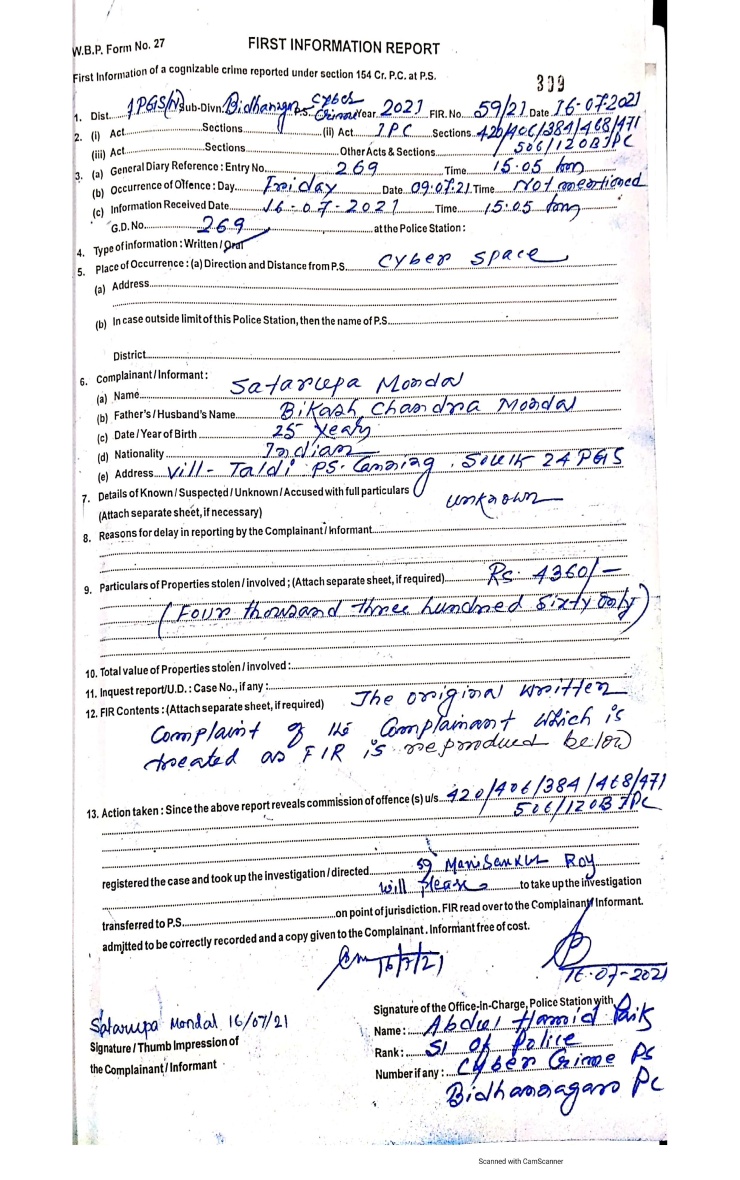 W.B.P. Form No. 27
FIRST INFORMATION REPORT
First Information of a cognizable crime reported under section 154 Cr. P.C. at P.S.
309
1. Dist. 1PGS(N) Sub-Divn. Bidhannagar P.S. Cyber Crime Year 2021 FIR. No. 59/21 Date 16-07-2021
2. (i) Act Sections (ii) Act IPC Sections 420/406/384/468/471
(iii) Act Sections Other Acts & Sections 506/120B IPC
3. (a) General Diary Reference : Entry No. 269 Time 15:05 hrs
(b) Occurrence of Offence : Day Friday Date 09.07.21 Time Not mentioned
(c) Information Received Date 16-07-2021 Time 15:05 hrs
G.D. No. 269 at the Police Station :
4. Type of information : Written / Oral
5. Place of Occurrence : (a) Direction and Distance from P.S. Cyber Space
(a) Address
(b) In case outside limit of this Police Station, then the name of P.S.
District
6. Complainant / Informant :
(a) Name Satarupa Mondal
(b) Father's / Husband's Name Bikash Chandra Mondal
(c) Date / Year of Birth 25 years
(d) Nationality Indian
(e) Address Vill- Taldi PS. Canning, South 24 PGS
7. Details of Known / Suspected / Unknown / Accused with full particulars unknown
(Attach separate sheet, if necessary)
8. Reasons for delay in reporting by the Complainant / Informant
9. Particulars of Properties stolen / involved ; (Attach separate sheet, if required) Rs. 4360/-
(Four thousand three hundred sixty only)
10. Total value of Properties stolen / involved :
11. Inquest report / U.D. : Case No., if any :
12. FIR Contents : (Attach separate sheet, if required) The original written
Complaint of the Complainant which is
treated as FIR is reproduced below
13. Action taken : Since the above report reveals commission of offence (s) u/s. 420/406/384/468/471
506/120B IPC
registered the case and took up the investigation / directed SI Manisankar Roy
will please to take up the investigation
transferred to P.S. on point of jurisdiction. FIR read over to the Complainant / Informant.
admjtted to be correctly recorded and a copy given to the Complainant. Informant free of cost.
16/7/21
16-07-2021
Satarupa Mondal 16/07/21
Signature / Thumb Impression of
the Complainant / Informant
Signature of the Office-In-Charge, Police Station with
Name : Abdul Hamid Paik
Rank : SI of Police
Number if any : Cyber Crime PS
Bidhannagar PC
Scanned with CamScanner